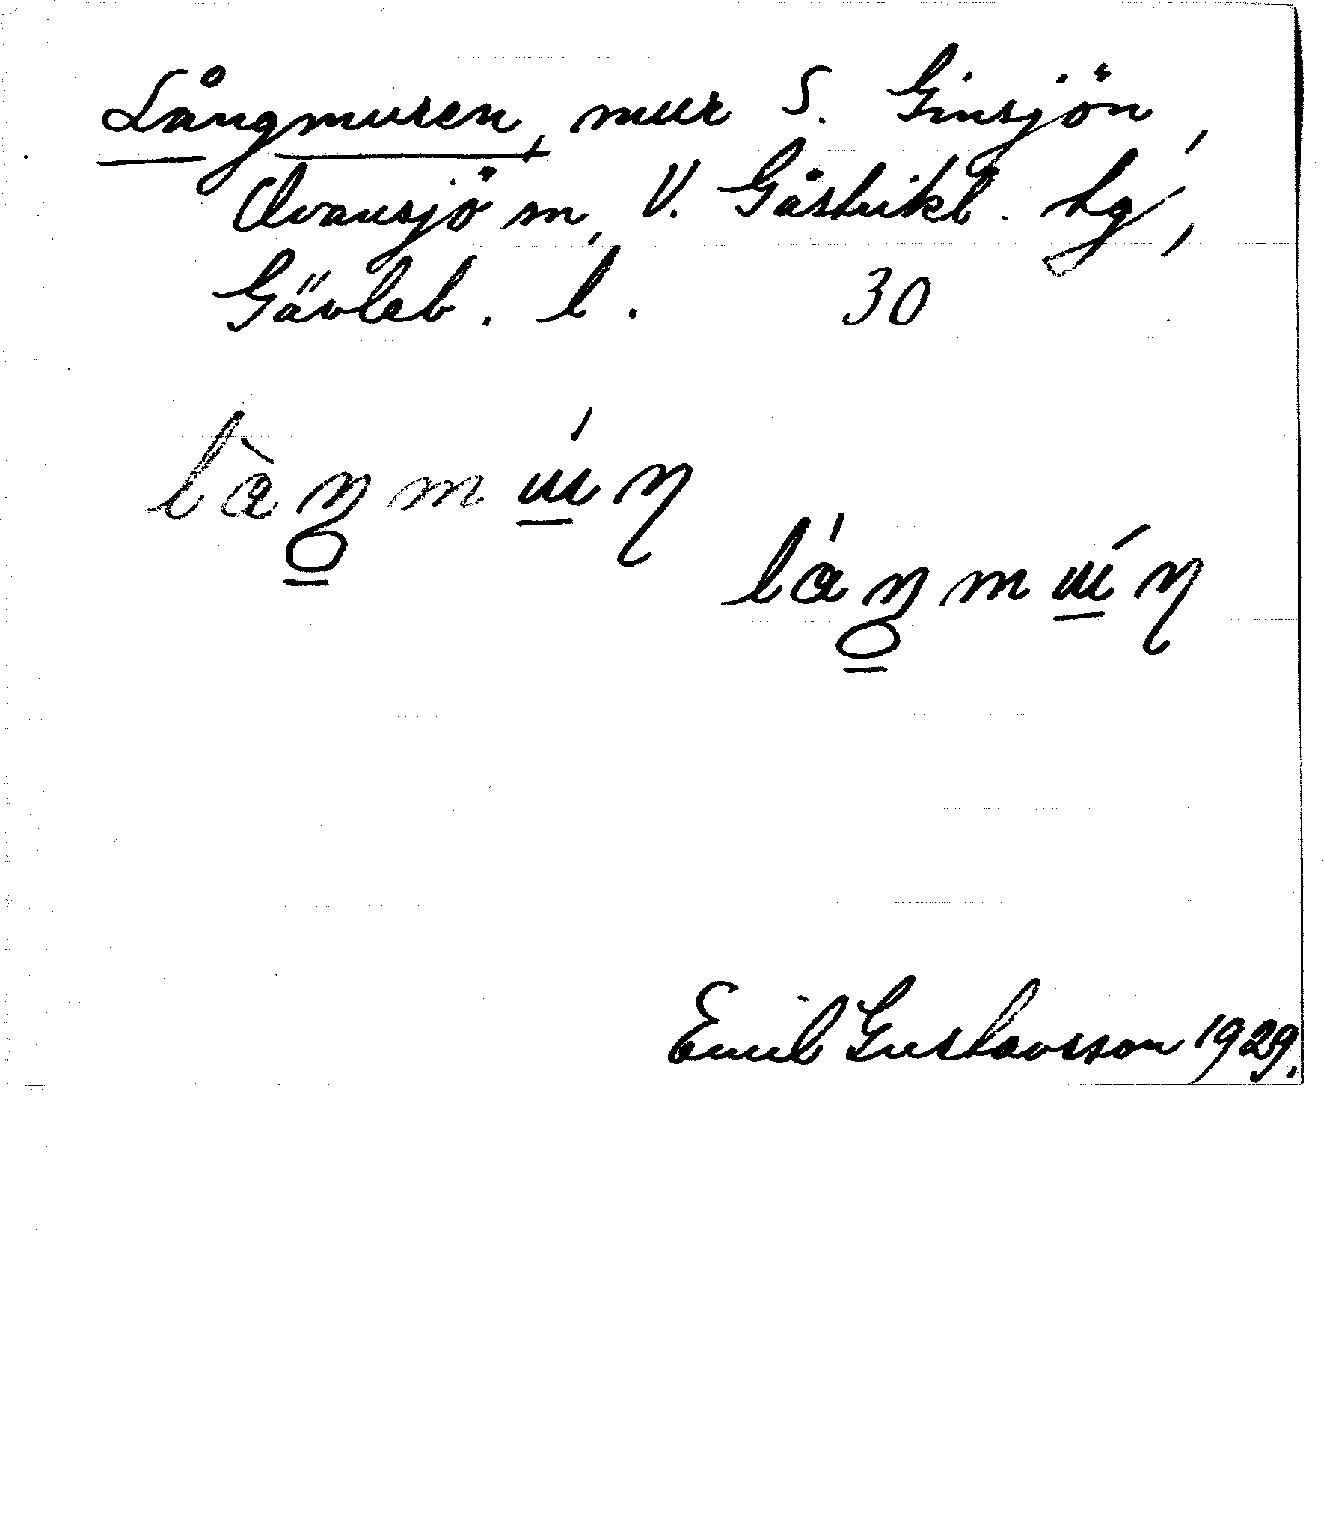 Långmuren, mur S. Ginsjön,
Ovansjö sn, V. Gästrikl. hg,
Gävleb. l. 30
Emil Gustavsson 1929.